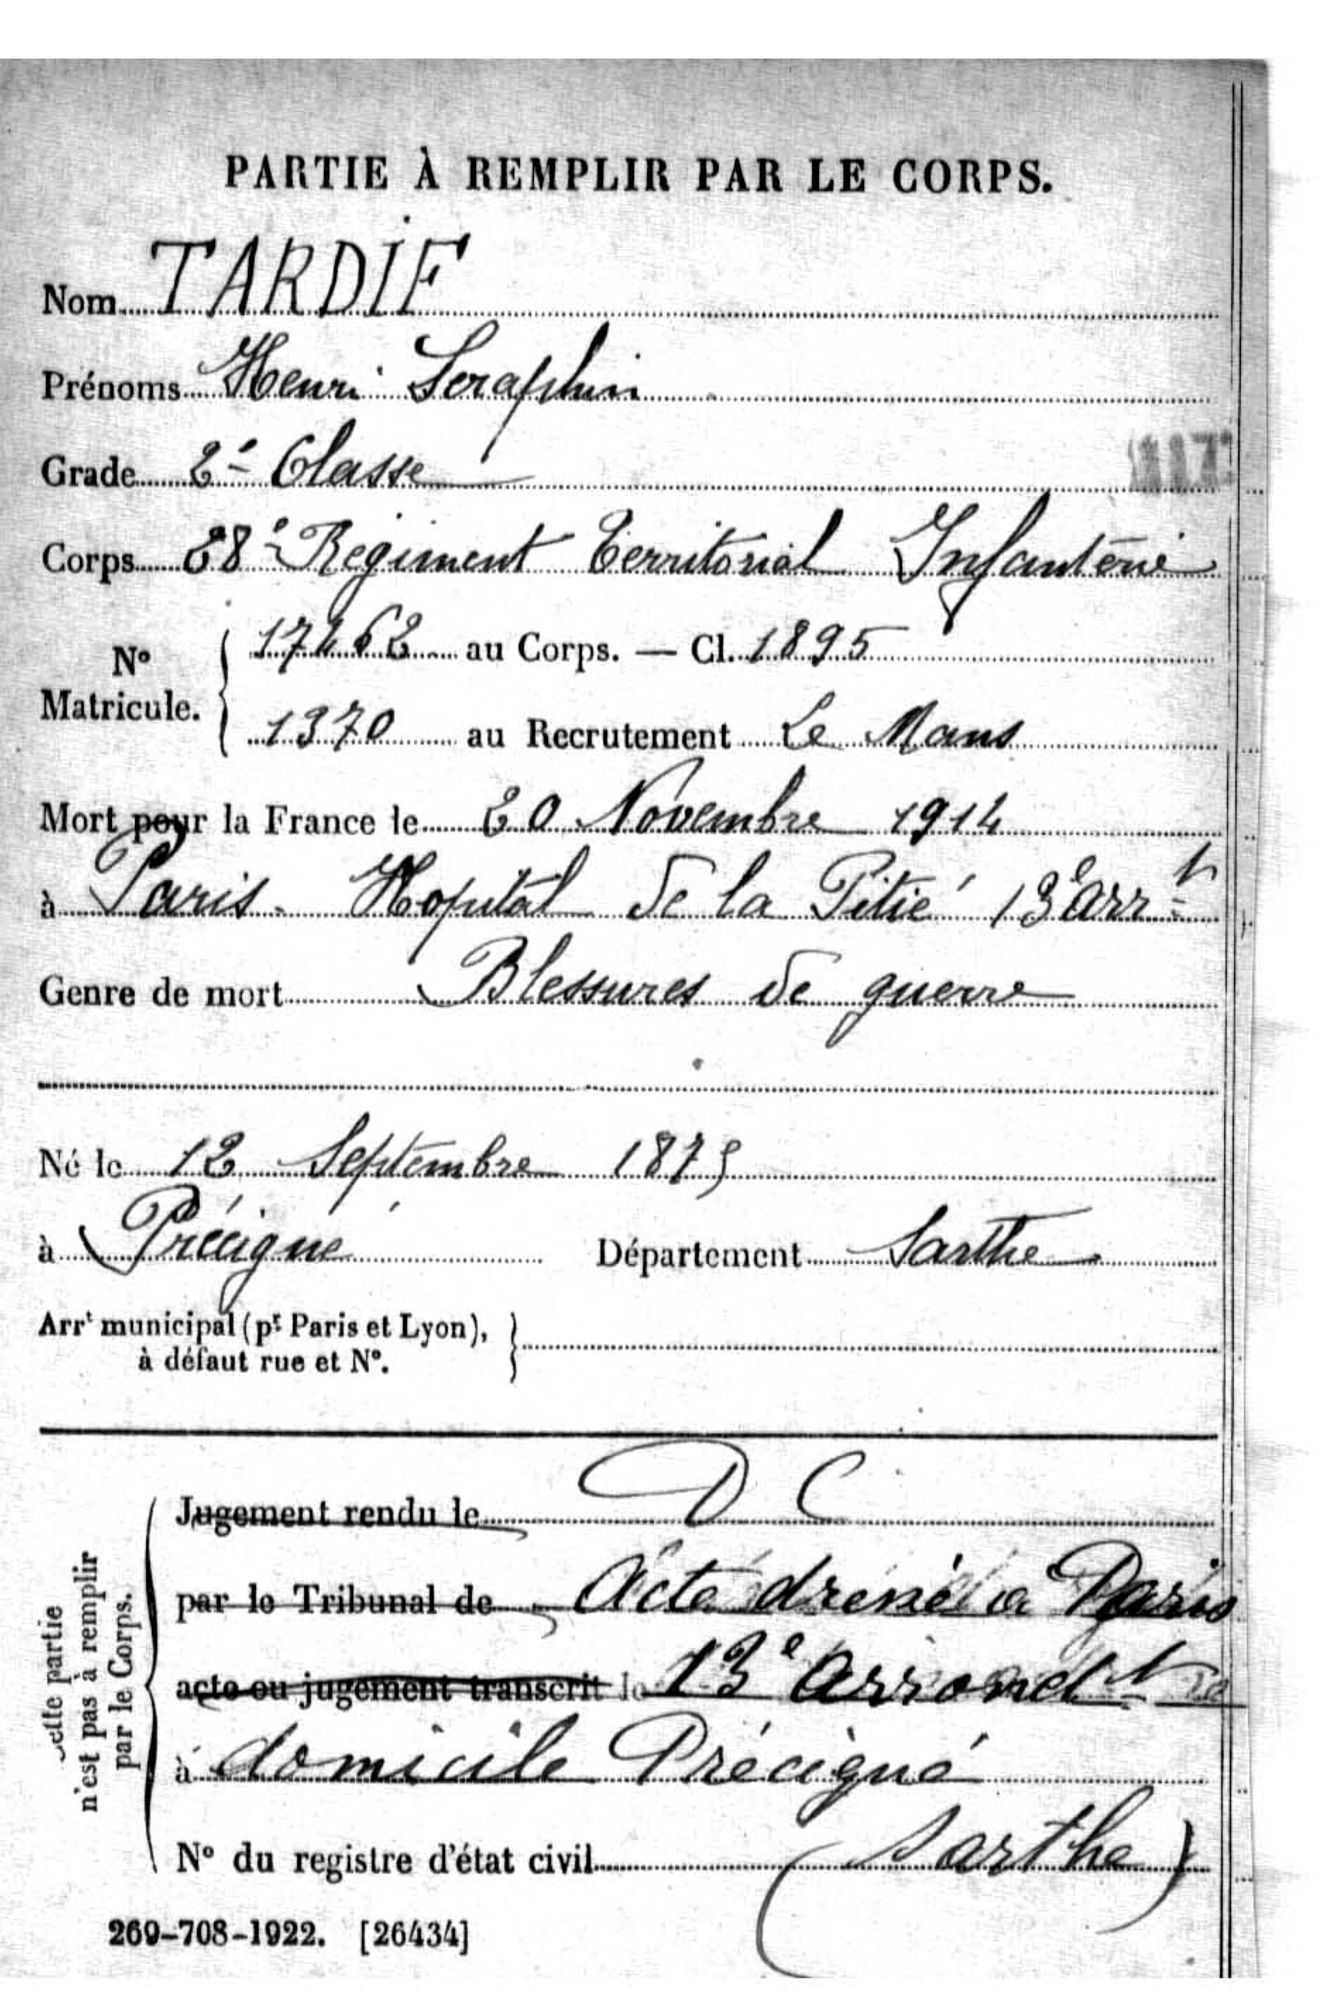 PARTIE À REMPLIR PAR LE CORPS.
Nom TARDIF
Prénoms Henri Seraphin
Grade 2e Classe
Corps 28e Régiment Territorial Infanterie
No Matricule. { 17462 au Corps. — Cl. 1895
1370 au Recrutement Le Mans
Mort pour la France le 20 Novembre 1914
à Paris. Hopital de la Pitié 13e arrt
Genre de mort Blessures de guerre
Né le 12 Septembre 1875
à Précigné Département Sarthe
Arrt municipal (pr Paris et Lyon), }
à défaut rue et No.
Cette partie
n'est pas à remplir
par le Corps.
Jugement rendu le D C
par le Tribunal de Acte dressé a Paris
acte ou jugement transcrit le 13e arrondt
à domicile Précigné
No du registre d'état civil (Sarthe)
269-708-1922. [26434]